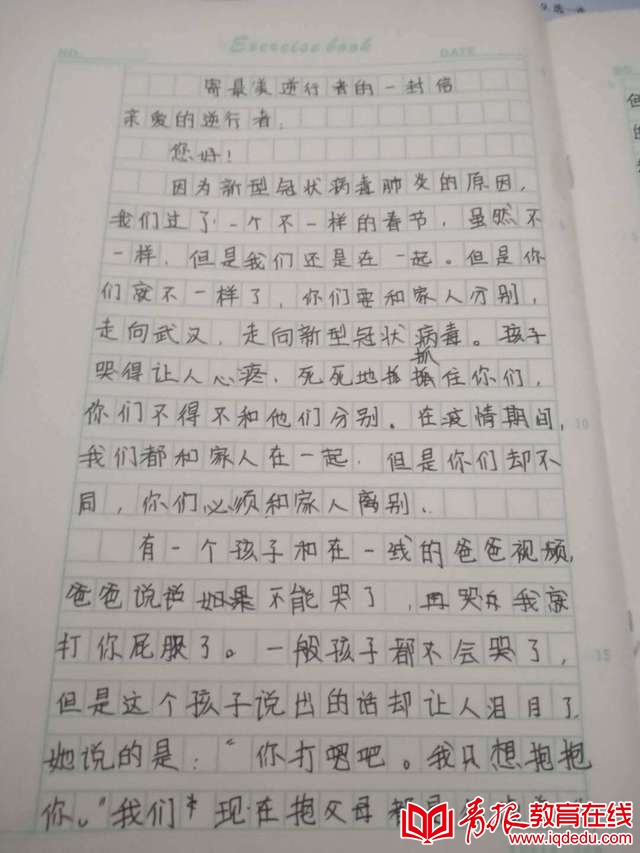 Exercise book
NO.
DATE
寄最美逆行者的一封信
亲爱的逆行者:
您好!
因为新型冠状病毒肺炎的原因,
我们过了一个不一样的春节,虽然不
一样,但是我们还是在一起。但是你
们就不一样了,你们要和家人分别,
走向武汉,走向新型冠状病毒。孩子
哭得让人心疼,死死地抓住你们,
你们不得不和他们分别。在疫情期间,
我们都和家人在一起,但是你们却不
同,你们必须和家人离别、
有一个孩子和在一线的爸爸视频,
爸爸说 不能哭了,再哭 我就
打你屁股了。一般孩子都不会哭了,
但是这个孩子说出的话却让人泪目了
她说的是:“你打吧。我只想抱抱
你。”我们 现在抱父母都是
10
15
青报教育在线
www.iqdedu.com